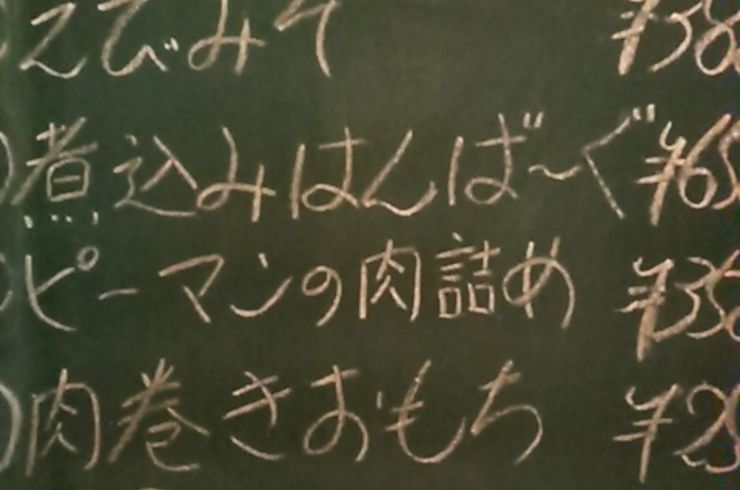 えびみそ ¥380
煮込みはんば〜ぐ ¥65
ピーマンの肉詰め ¥350
肉巻きおもち ¥25